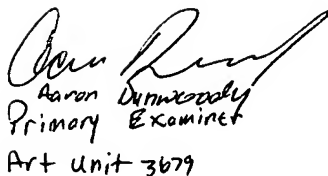 Aaron Dunwoody
Primary Examiner
Art Unit 3679